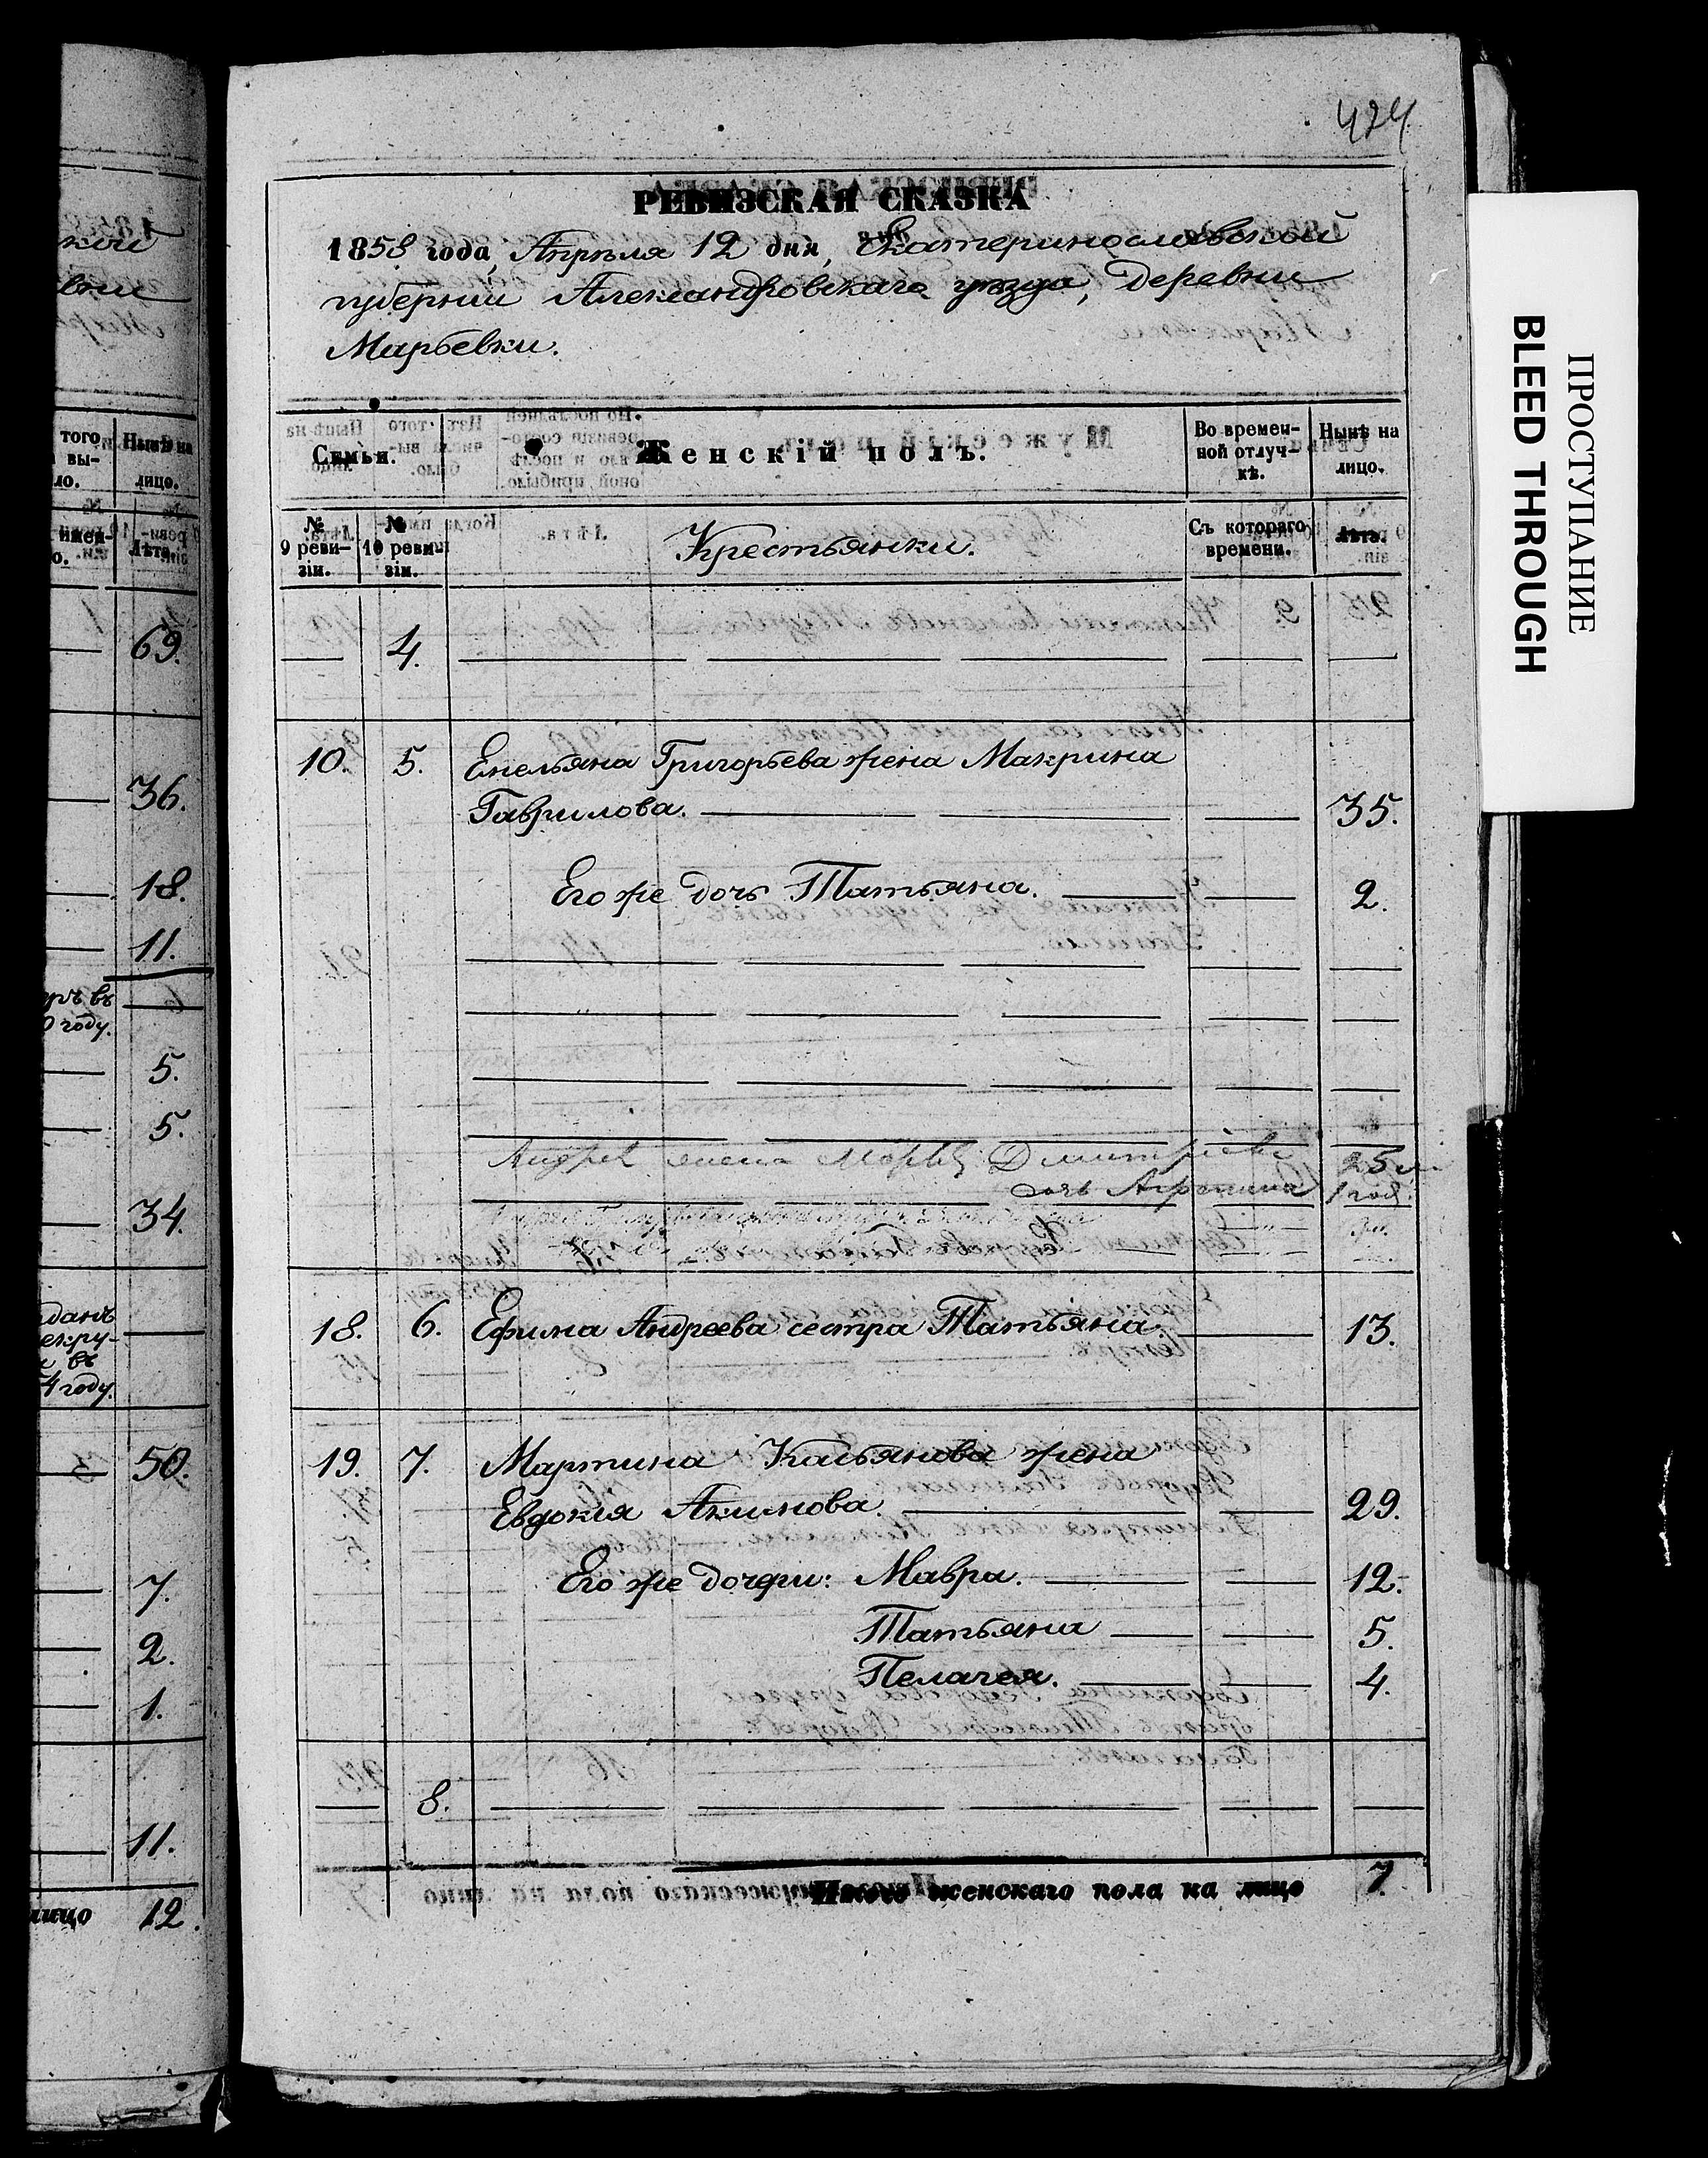 424
РЕВИЗСКАЯ СКАЗКА
1858 года, Апрѣля 12 дня, Екатеринославской
губерніи Александровскаго уѣзда, деревни
Марьевки.
Семьи. Женскій полъ. Во времен-ной отлуч-кѣ. Нынѣ на лицо.
№ 9 реви-зіи. № 10 реви-зіи. Крестьянки. Съ котораго времени. Лѣта.
4.
10. 5. Емельяна Григорьева жена Макрина
Гаврилова. 35.
Его же дочь Татьяна. 2.
Андрея жена Марья Дмитріева 25
дочь Агрепина 1 год.
18. 6. Ефима Андреева сестра Татьяна. 13.
19. 7. Мартина Касьянова жена
Евдокія Акимова. 29.
Его же дочери: Мавра. 12.
Татьяна 5.
Пелагея. 4.
8.
Итого женскаго пола на лицо 7.
того вы-ло. Нынѣ на лицо.
Лѣта.
69.
36.
18.
11.
году.
5.
5.
34.
въ
4 году.
50.
7.
2.
1.
11.
лицо 12.
ПРОСТУПАНИЕ
BLEED THROUGH